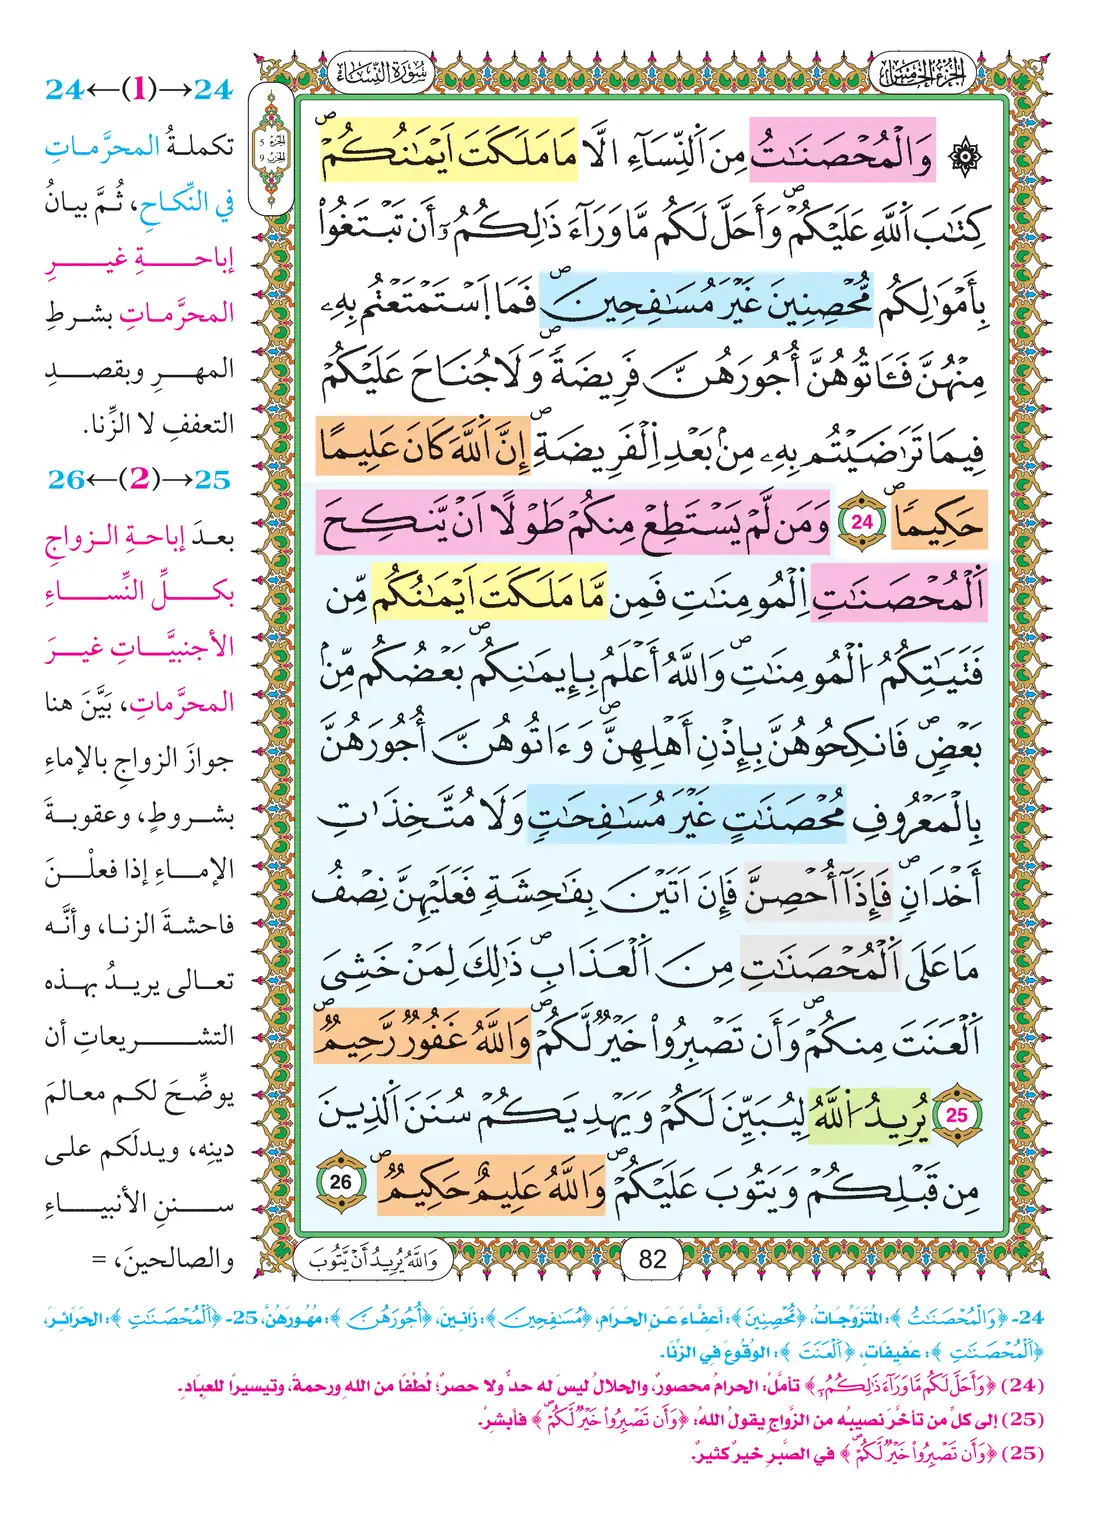 الجزء الخامس
سورة النساء
الجزء 5
الحزب 9
وَالْمُحْصَنَٰتُ مِنَ اَ۬لنِّسَآءِ الَّا مَا مَلَكَتَ اَيْمَٰنُكُمْۖ
كِتَٰبَ اَ۬للَّهِ عَلَيْكُمْۖ وَأَحَلَّ لَكُم مَّا وَرَآءَ ذَٰلِكُمُۥٓ أَن تَبْتَغُواْ
بِأَمْوَٰلِكُم مُّحْصِنِينَ غَيْرَ مُسَٰفِحِينَۖ فَمَا اَ۪سْتَمْتَعْتُم بِهِۦ
مِنْهُنَّ فَـَٔاتُوهُنَّ أُجُورَهُنَّ فَرِيضَةٗۖ وَلَا جُنَاحَ عَلَيْكُمْ
فِيمَا تَرَٰضَيْتُم بِهِۦ مِنۢ بَعْدِ اِ۬لْفَرِيضَةِۖ إِنَّ اَ۬للَّهَ كَانَ عَلِيماً
حَكِيماٗۖ 24 وَمَن لَّمْ يَسْتَطِعْ مِنكُمْ طَوْلاً اَنْ يَّنكِحَ
اَ۬لْمُحْصَنَٰتِ اِ۬لْمُومِنَٰتِ فَمِن مَّا مَلَكَتَ اَيْمَٰنُكُم مِّن
فَتَيَٰتِكُمُ اُ۬لْمُومِنَٰتِۖ وَاللَّهُ أَعْلَمُ بِإِيمَٰنِكُمۖ بَعْضُكُم مِّنۢ
بَعْضٖۖ فَانكِحُوهُنَّ بِإِذْنِ أَهْلِهِنَّۖ وَءَاتُوهُنَّ أُجُورَهُنَّ
بِالْمَعْرُوفِ مُحْصَنَٰتٍ غَيْرَ مُسَٰفِحَٰتٖ وَلَا مُتَّخِذَٰتِ
أَخْدَانٖۖ فَإِذَآ أُحْصِنَّ فَإِنَ اَتَيْنَ بِفَٰحِشَةٖ فَعَلَيْهِنَّ نِصْفُ
مَا عَلَى اَ۬لْمُحْصَنَٰتِ مِنَ اَ۬لْعَذَابِۖ ذَٰلِكَ لِمَنْ خَشِيَ
اَ۬لْعَنَتَ مِنكُمْۖ وَأَن تَصْبِرُواْ خَيْرٞ لَّكُمْۖ وَاللَّهُ غَفُورٞ رَّحِيمٞۖ
25 يُرِيدُ اُ۬للَّهُ لِيُبَيِّنَ لَكُمْ وَيَهْدِيَكُمْ سُنَنَ اَ۬لذِينَ
مِن قَبْلِكُمْ وَيَتُوبَ عَلَيْكُمْۖ وَاللَّهُ عَلِيمٌ حَكِيمٞۖ 26
82
وَاللَّهُ يُرِيدُ أَنْ يَّتُوبَ
24←(1)→24
تكملةُ المحرَّماتِ
في النِّكاحِ، ثُمَّ بيانُ
إباحةِ غيرِ
المحرَّماتِ بشرطِ
المهرِ وبقصدِ
التعففِ لا الزِّنا.
26←(2)→25
بعدَ إباحةِ الزواجِ
بكلِّ النِّساءِ
الأجنبيَّاتِ غيرَ
المحرَّماتِ، بَيَّنَ هنا
جوازَ الزواجِ بالإماءِ
بشروطٍ، وعقوبةَ
الإماءِ إذا فعلْنَ
فاحشةَ الزنا، وأنَّه
تعالى يريدُ بهذه
التشريعاتِ أن
يوضِّحَ لكم معالمَ
دينِه، ويدلَكم على
سننِ الأنبياءِ
والصالحينَ، =
24- ﴿وَالْمُحْصَنَٰتُ﴾: المُتَزَوِّجَاتُ، ﴿مُّحْصِنِينَ﴾: أعفَّاءَ عَنِ الحَرَامِ، ﴿مُسَٰفِحِينَ﴾: زَانِينَ، ﴿أُجُورَهُنَّ﴾: مُهُورَهُنَّ، 25- ﴿اَ۬لْمُحْصَنَٰتِ﴾: الحَرَائِرَ،
﴿اَ۬لْمُحْصَنَٰتِ﴾: عفيفاتٍ، ﴿اَ۬لْعَنَتَ﴾: الوُقُوعَ فِي الزِّنَا.
(24) ﴿وَأَحَلَّ لَكُم مَّا وَرَآءَ ذَٰلِكُمُۥٓ﴾ تأملْ: الحرامُ محصورٌ، والحلالُ ليسَ له حدٌّ ولا حصرٌ؛ لُطفًا من اللهِ ورحمةً، وتيسيرًا للعبادِ.
(25) إلى كلِّ من تأخَّرَ نصيبُه من الزَّواجِ يقولُ اللهُ: ﴿وَأَن تَصْبِرُواْ خَيْرٞ لَّكُمْۖ﴾ فأبشرْ.
(25) ﴿وَأَن تَصْبِرُواْ خَيْرٞ لَّكُمْۖ﴾ في الصَّبرِ خيرٌ كثيرٌ.